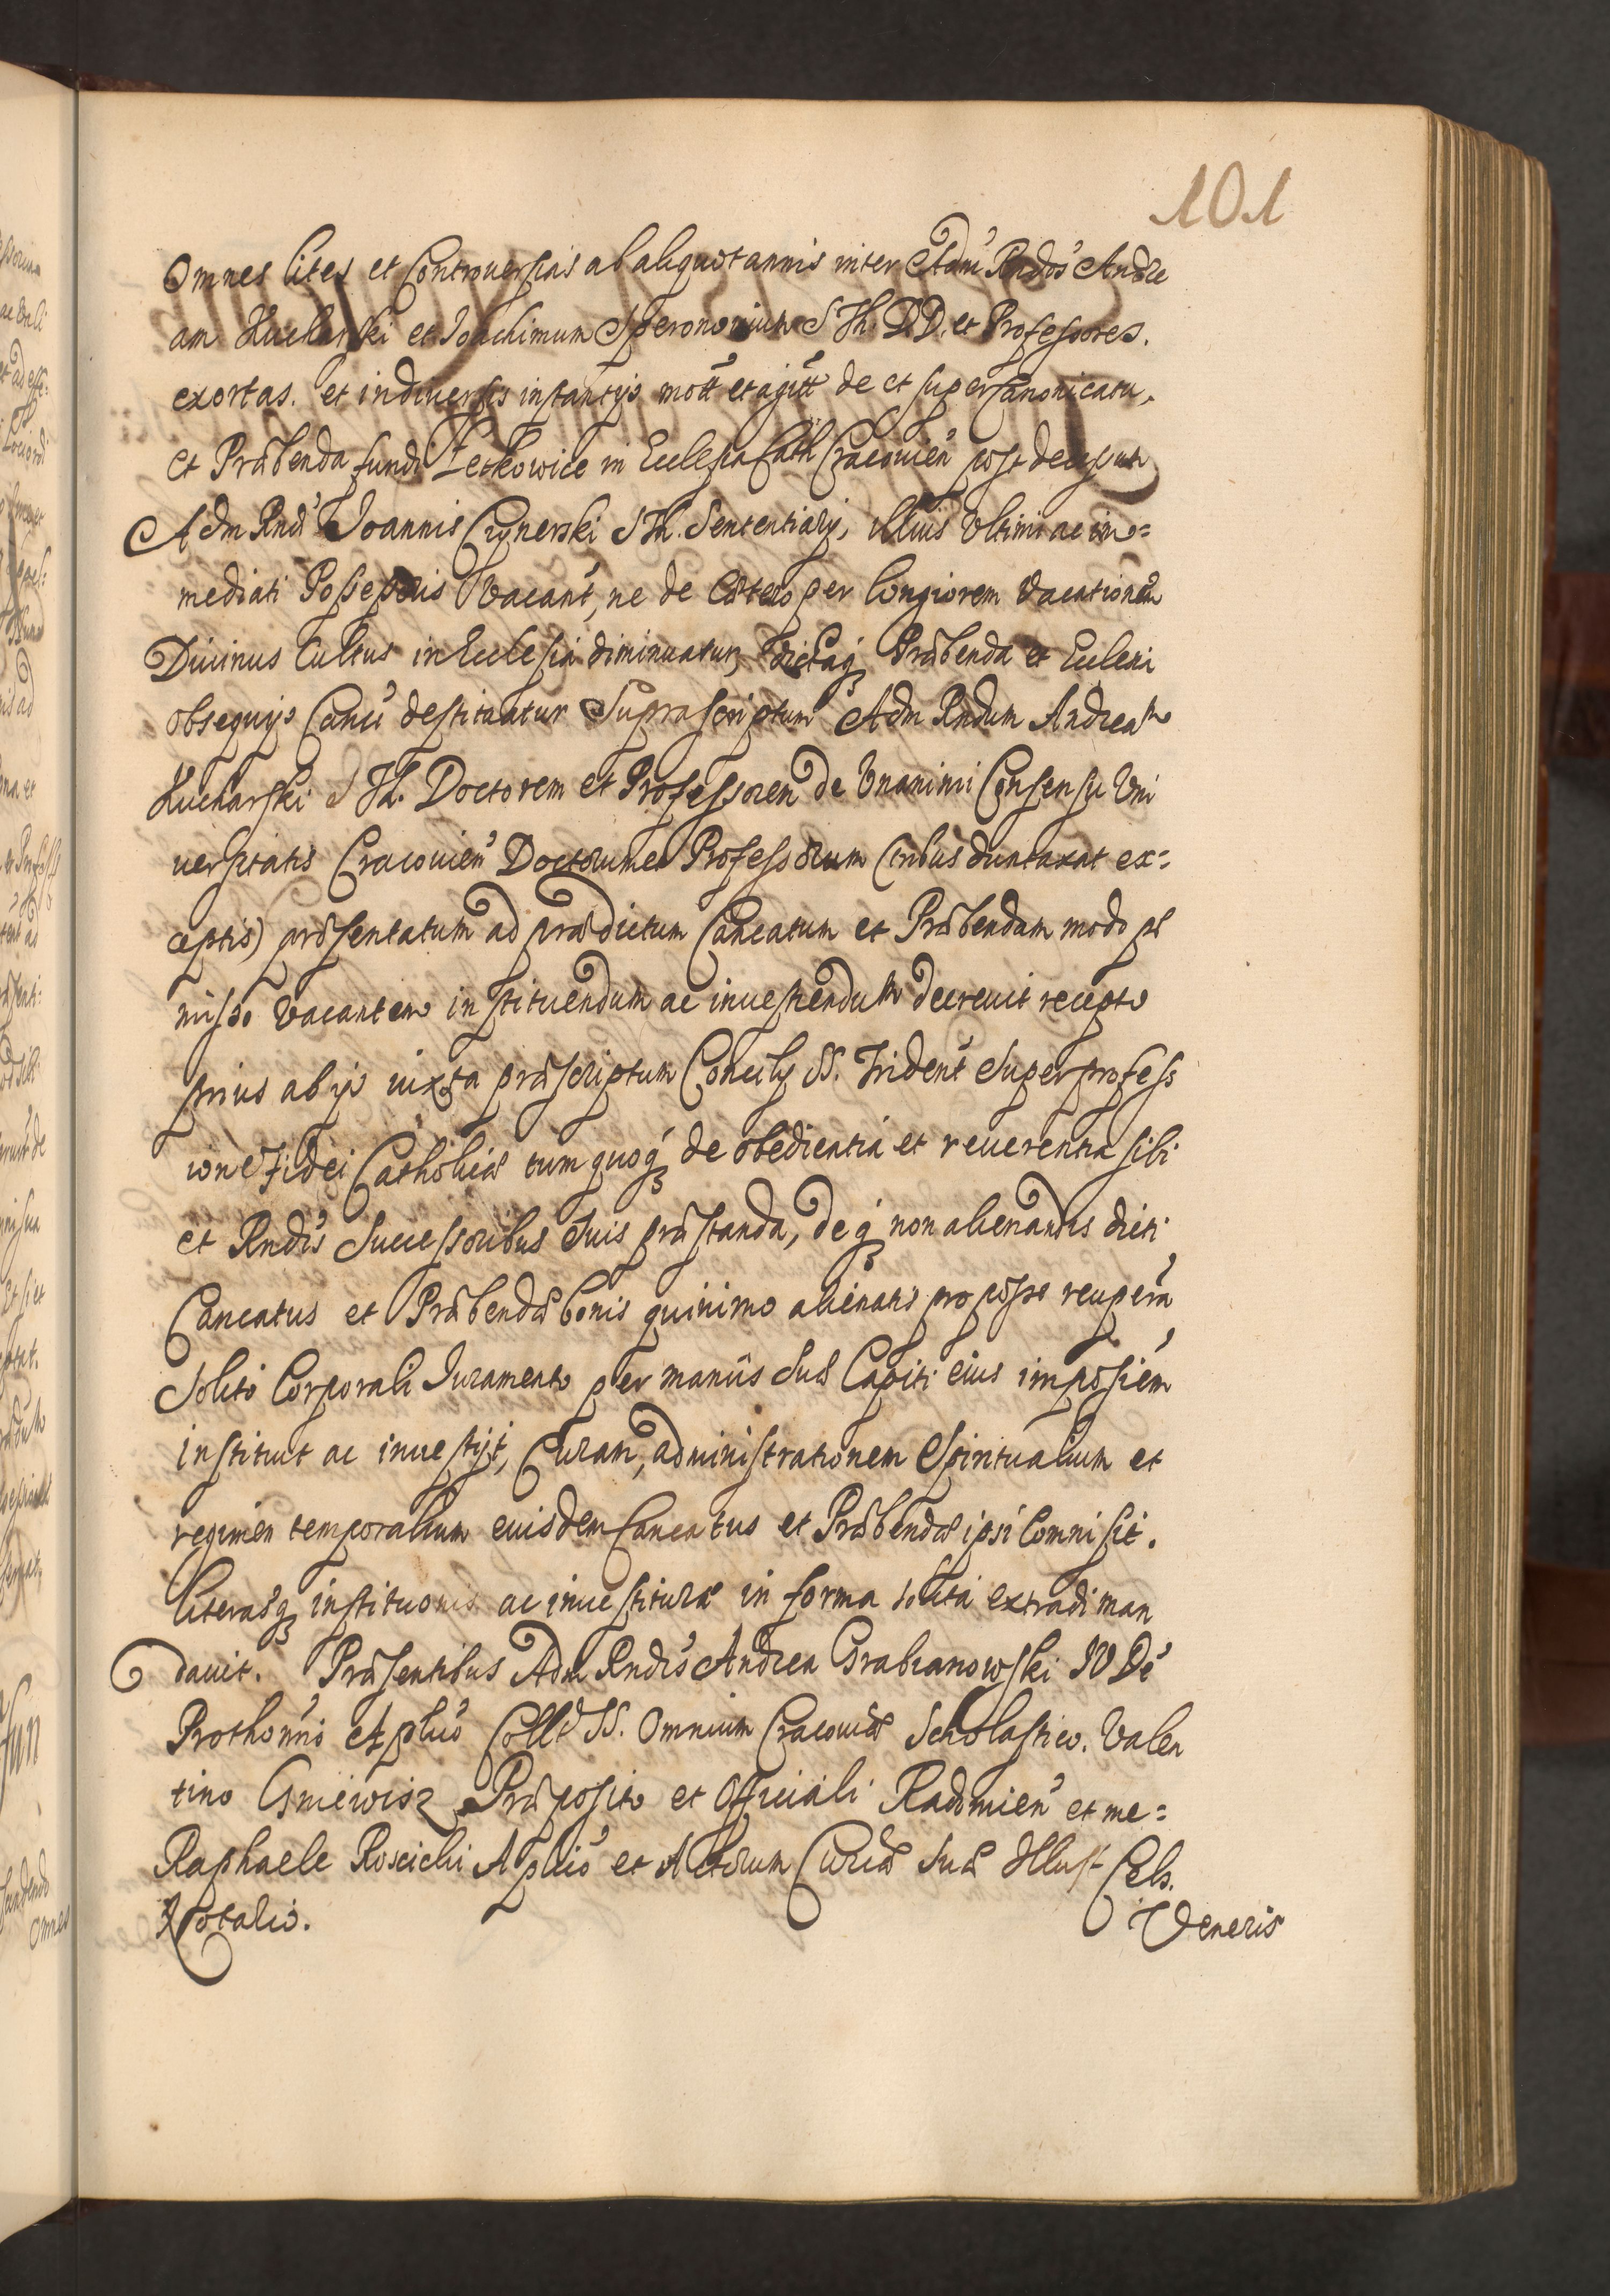 101
Omnes lites et Controuersias ab aliquot annis inter Adm Rndos Andre
am Kucharski et Joachimum Speronowium S Th. DD. et Professores.
exortas. et in diuersis instantijs mott et agitt de et super Canonicatu,
et Præbenda fundi Letkowice in Ecclesia Cath Cracouien post decessum
Adm Rndi Joannis Crynerski S Th. Sententiarij, illius Vltimi ac im=
mediati Possessoris Vacant, ne de Cætero per longiorem Vacationem
Diuinus Cultus in Ecclesia diminuatur, dictaq Præbenda et Ecclesia
obsequijs Canci destituatur Suprascriptum Adm Rndum Andream
Kucharski S Th. Doctorem et Professorem de Vnanimi Consensu Vni
uersitatis Cracouien Doctorum et Professorum (tribus duntaxat ex=
ceptis) præsentatum ad prædictum Cancatum et Præbendam modo præ
misso Vacantem instituendum ac inuestiendum decreuit recepto
prius ab ijs iuxta præscriptum Concilij SS. Trident Super profess
ione Fidei Catholicæ tum quoq de obedientia et reuerentia sibi
et Rndis Successoribus Suis præstanda, deq non alienandis dicti
Cancatus et Præbendæ bonis quinimo alienatis pro posse recupera
Solito Corporali Juramento per manus Suæ Capiti eius imposiem
instituit ac inuestijt, Curam, administrationem Spiritualium et
regimen temporalium eiusdem Cancatus et Præbendæ ipsi Commisit.
literasq institionis ac inuestituræ in forma solita extradi man
dauit. Præsentibus Adm Rndis Andrea Grabianowski IV De
Prothonno Aplico Colltæ SS. Omnium Cracouiæ Scholastico. Valen
tino Gniewisz Præposito et Officiali Radomien et me=
Raphaele Roscichi Aplico et Actorum Curiæ Suæ Illust Cels.
Notario.
Veneris